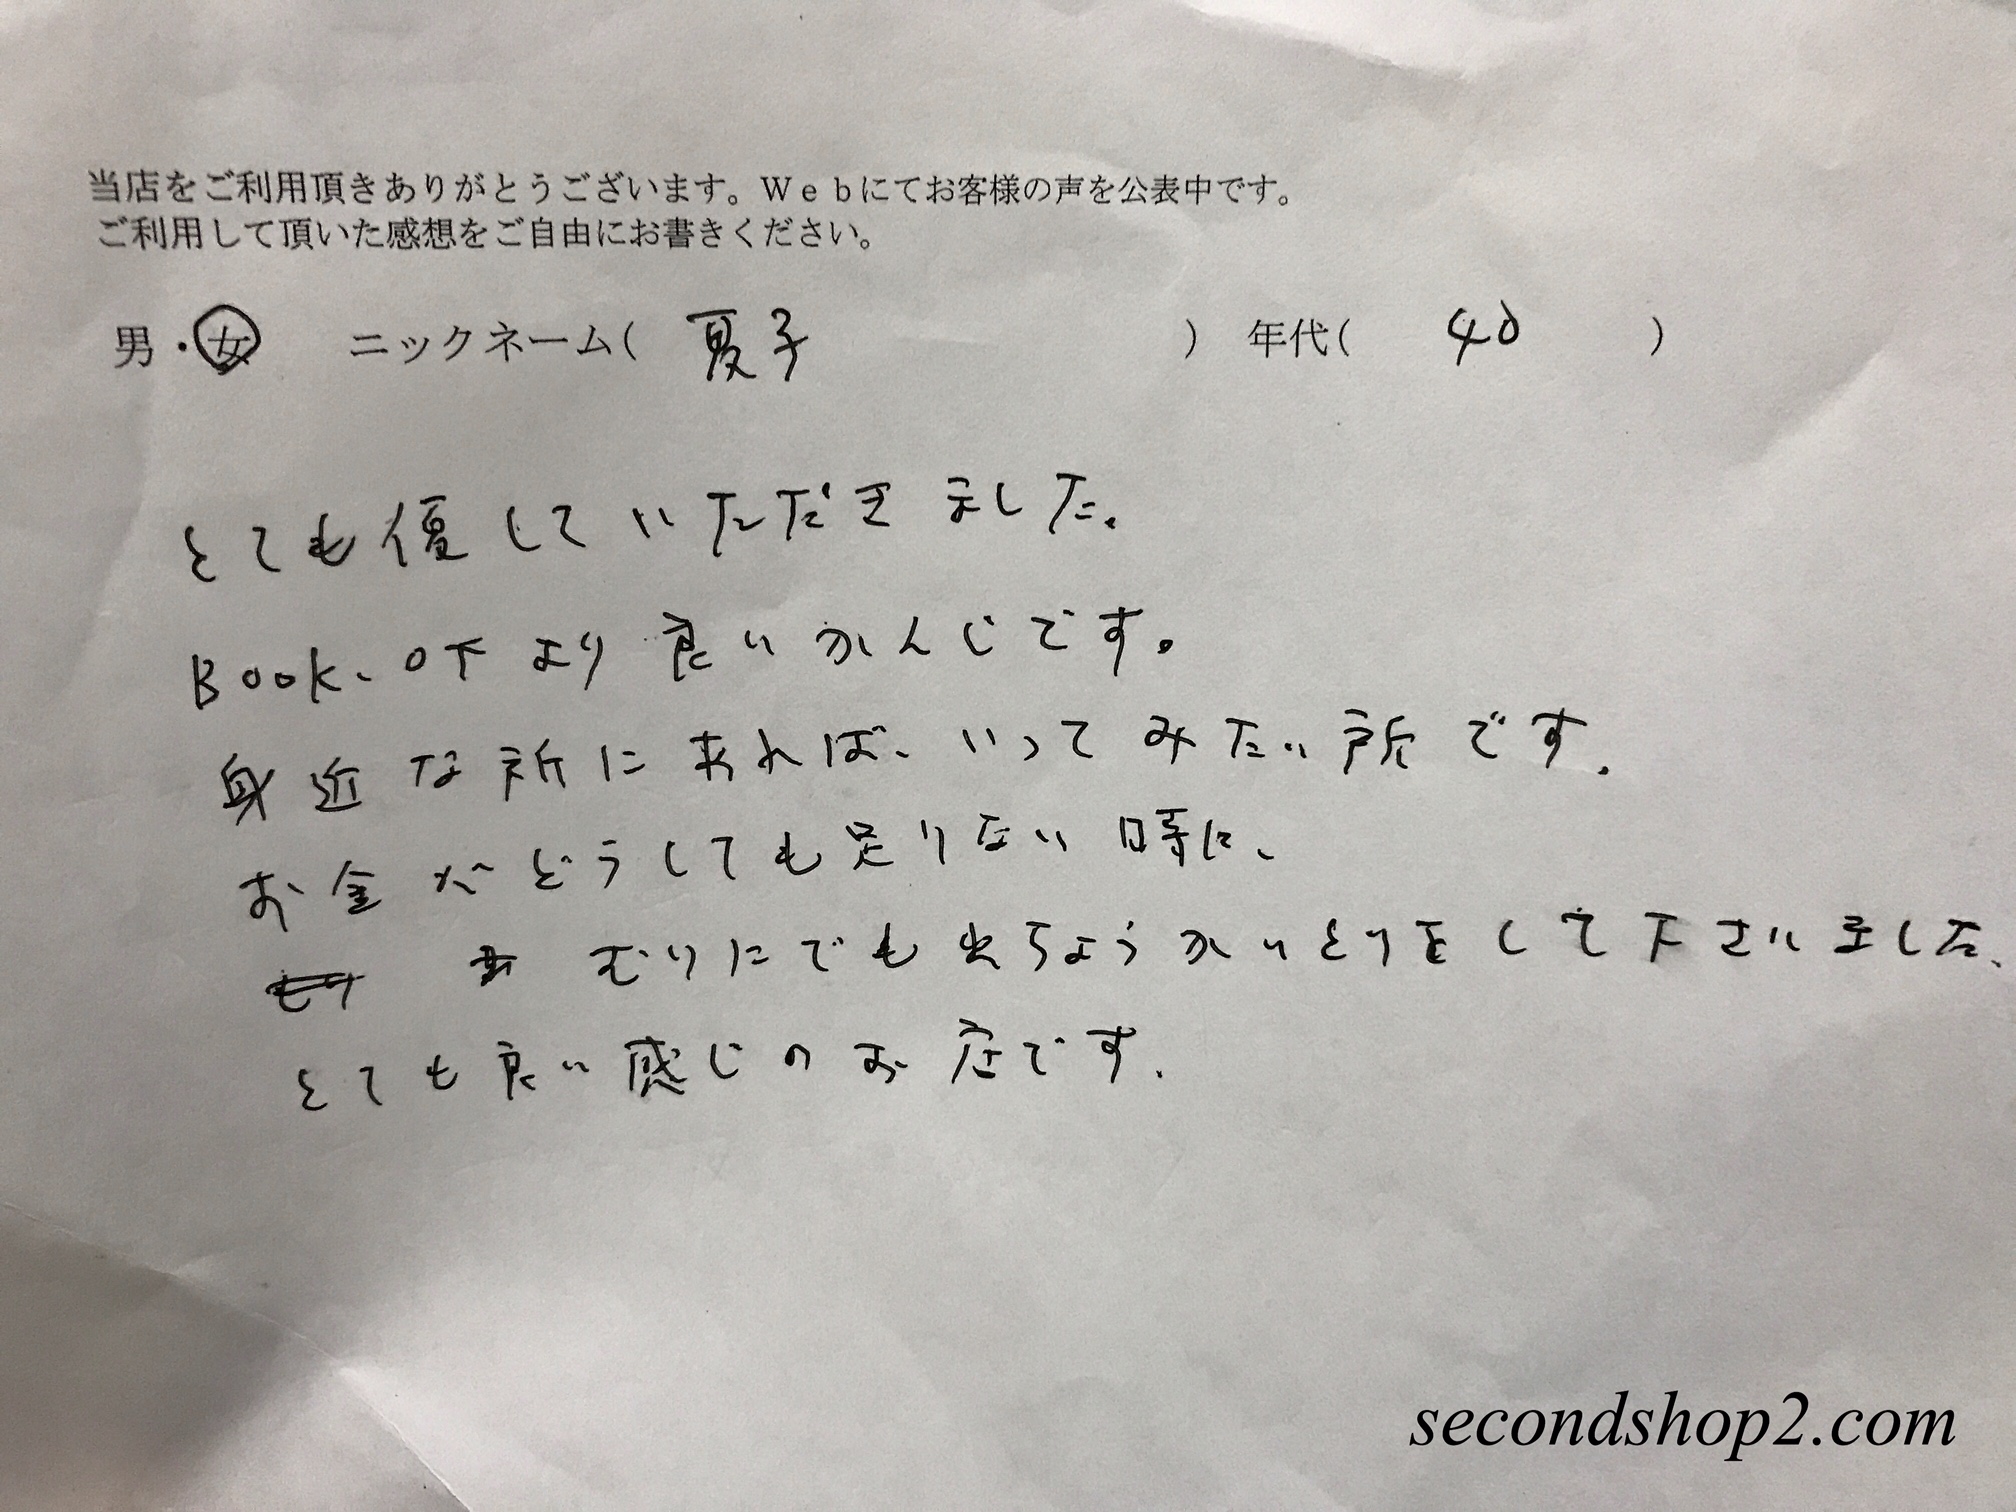 当店をご利用頂きありがとうございます。Ｗｅｂにてお客様の声を公表中です。
ご利用して頂いた感想をご自由にお書きください。
男・女 ニックネーム( 夏子 ) 年代( 40 )
とても優していただきました。
Book、OFより良いかんじです。
身近な所にあれば、いってみたい所です。
お金がどうしても足りない時に、
むりにでも出ちょうかいとりをして下さいました、
とても良い感じのお店です.
secondshop2.com